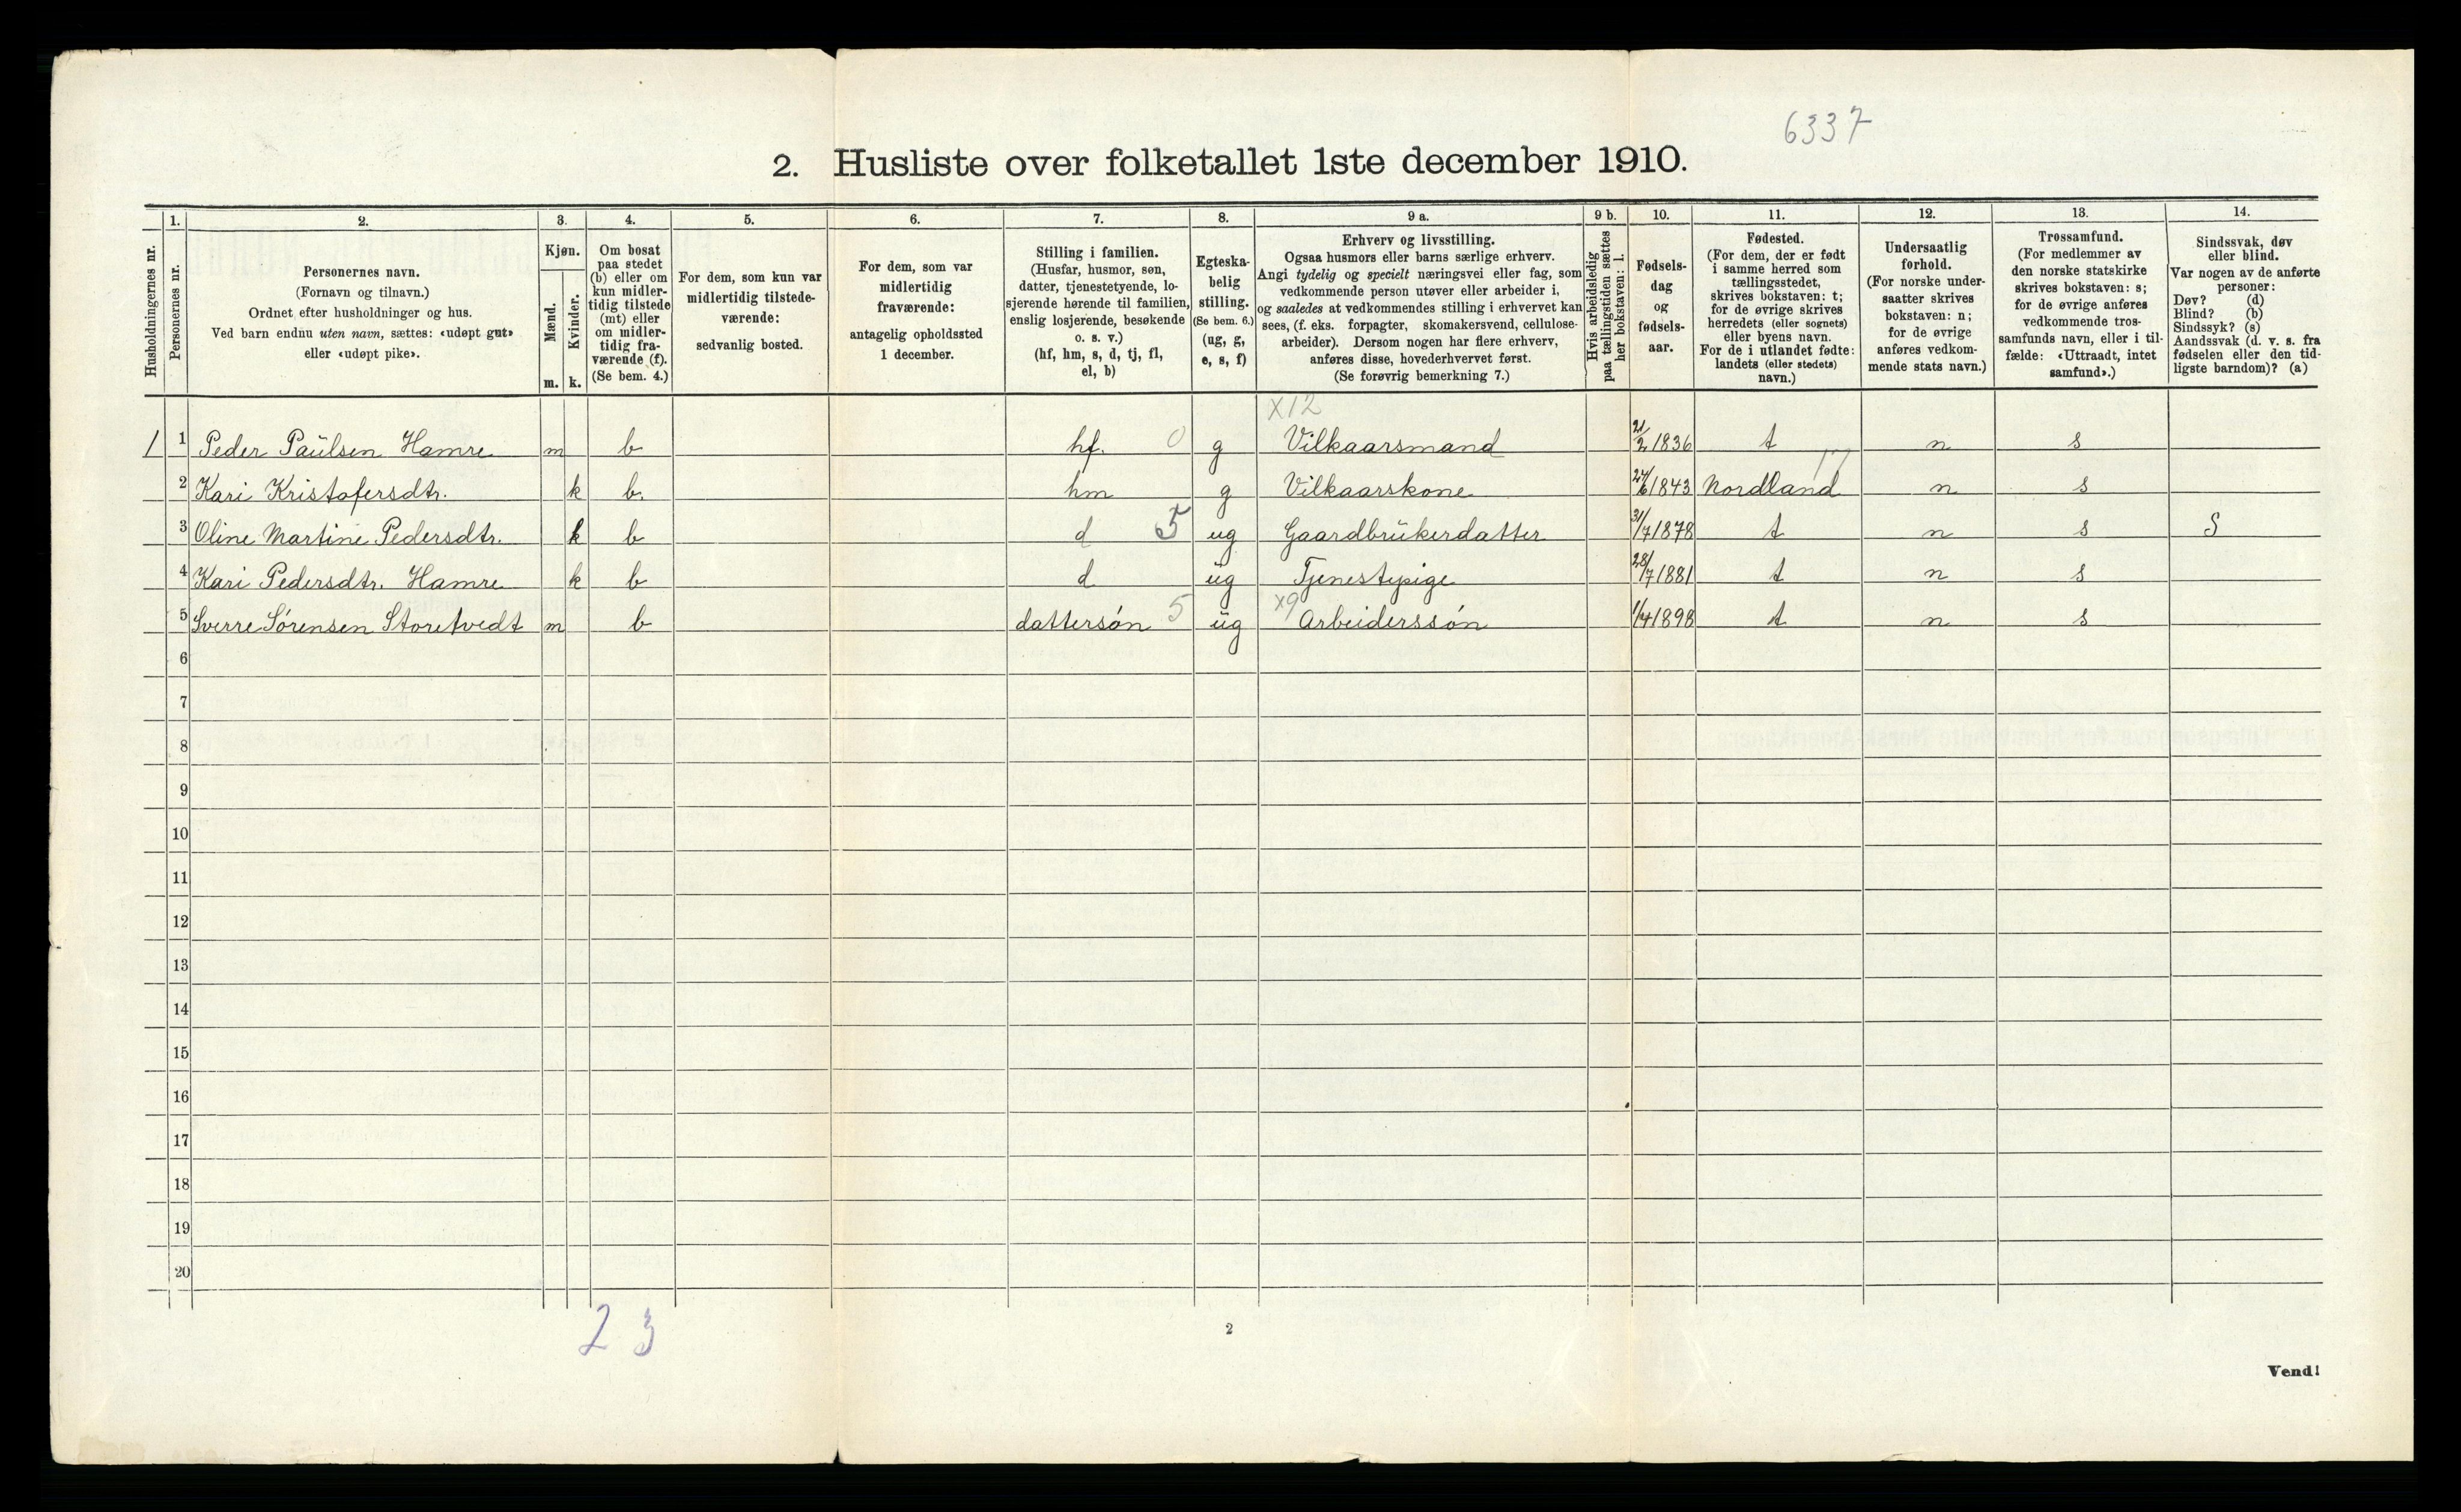 6337
2. Husliste over folketallet 1ste december 1910.
Husholdningernes nr.
1.
Personernes nr.
2.
Personernes navn.
(Fornavn og tilnavn.)
Ordnet efter husholdninger og hus.
Ved barn endnu uten navn, sættes: «udøpt gut»
eller «udøpt pike».
3.
Kjøn.
Mænd.
Kvinder.
m. k.
4.
Om bosat
paa stedet
(b) eller om
kun midler-
tidig tilstede
(mt) eller
om midler-
tidig fra-
værende (f).
(Se bem. 4.)
5.
For dem, som kun var
midlertidig tilstede-
værende:
sedvanlig bosted.
6.
For dem, som var
midlertidig
fraværende:
antagelig opholdssted
1 december.
7.
Stilling i familien.
(Husfar, husmor, søn,
datter, tjenestetyende, lo-
sjerende hørende til familien,
enslig losjerende, besøkende
o. s. v.)
(hf, hm, s, d, tj, fl,
el, b)
8.
Egteska-
belig
stilling.
(Se bem. 6.)
(ug, g,
e, s, f)
9 a.
Erhverv og livsstilling.
Ogsaa husmors eller barns særlige erhverv.
Angi tydelig og specielt næringsvei eller fag, som
vedkommende person utøver eller arbeider i,
og saaledes at vedkommendes stilling i erhvervet kan
sees, (f. eks. forpagter, skomakersvend, cellulose-
arbeider). Dersom nogen har flere erhverv,
anføres disse, hovederhvervet først.
(Se forøvrig bemerkning 7.)
9 b.
Hvis arbeidsledig
paa tællingstiden sættes
her bokstaven: l.
10.
Fødsels-
dag
og
fødsels-
aar.
11.
Fødested.
(For dem, der er født
i samme herred som
tællingsstedet,
skrives bokstaven: t;
for de øvrige skrives
herredets (eller sognets)
eller byens navn.
For de i utlandet fødte:
landets (eller stedets)
navn.)
12.
Undersaatlig
forhold.
(For norske under-
saatter skrives
bokstaven: n;
for de øvrige
anføres vedkom-
mende stats navn.)
13.
Trossamfund.
(For medlemmer av
den norske statskirke
skrives bokstaven: s;
for de øvrige anføres
vedkommende tros-
samfunds navn, eller i til-
fælde: «Uttraadt, intet
samfund».)
14.
Sindssvak, døv
eller blind.
Var nogen av de anførte
personer:
Døv? (d)
Blind? (b)
Sindssyk? (s)
Aandssvak (d. v. s. fra
fødselen eller den tid-
ligste barndom)? (a)
X12
1 1 Peder Paulsen Hamre m b hf. 0 g Vilkaarsmand 21/2 1836 t n s
17
2 Kari Kristofersdtr. k b. hm g Vilkaarskone 24/6 1843 Nordland n s
3 Oline Martine Pedersdtr. k b d 5 ug Gaardbrukerdatter 31/7 1878 t n s S
4 Kari Pedersdtr. Hamre k b d ug Tjenestepige 28/7 1881 t n s
5 Sverre Sørensen Storetvedt m b dattersøn 5 ug x9 Arbeiderssøn 1/4 1898 t n s
6
7
8
9
10
11
12
13
14
15
16
17
18
19
20
2 3
2
Vend!